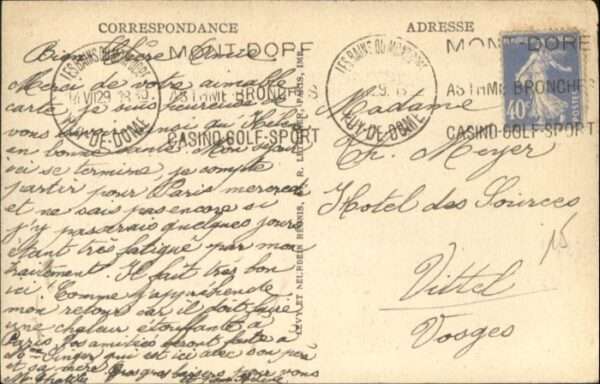 CORRESPONDANCE
ADRESSE
LES BAINS DU MONT-DORE
14 VII 29 18 35
PUY-DE-DOME
MONT-DORE
ASTHME BRONCHES
CASINO-GOLF-SPORT
LES BAINS DU MONT-DORE
PUY-DE-DOME
MONT-DORE
ASTHME BRONCHES
CASINO-GOLF-SPORT
40c
POSTES
LEVY ET NEURDEIN REUNIS, PARIS, IMP.
Bien Chère Amie
Merci de votre aimable
carte, je suis heureuse de
vous savoir
en bonne santé. Mon séjour
ici se termine, je compte
partir pour Paris mercredi
et ne sais pas encore si
j'y passerais quelques jours
étant très fatiguée par mon
traitement. Il fait très bon
ici. Comme j'appréhende
mon retour car il doit faire
une chaleur étouffante à
Paris. Vos amitiés seront faite à
qui est ici avec son père
et sa mère. Gros gros baisers pour vous
Madame
Ch. Meyer
Hotel des Sources
Vittel
Vosges
15